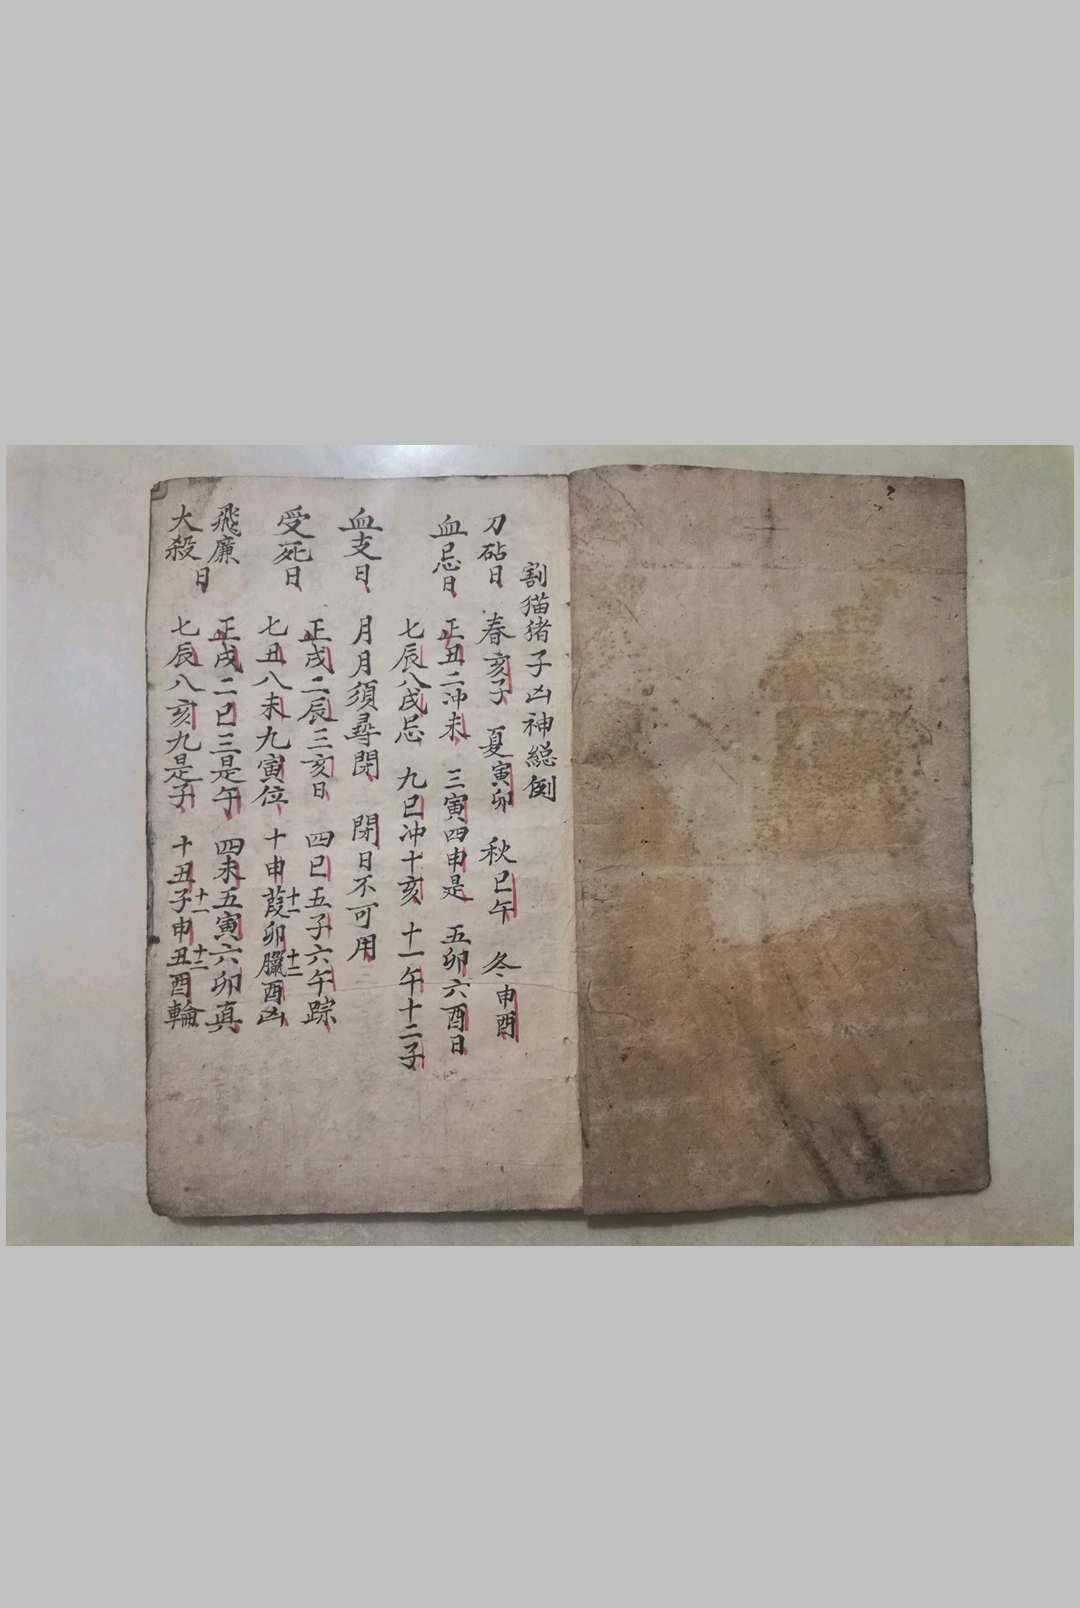 割猫猪子凶神総例
刀砧日 春亥子 夏寅卯 秋巳午 冬申酉
血忌日 正丑二冲未 三寅四申是 五卯六酉日
七辰八戌忌 九巳冲十亥 十一午十二子
血支日 月月須尋閉 閉日不可用
受死日 正戌二辰三亥日 四巳五子六午踪
七丑八未九寅位 十申十一葭卯十二臘酉凶
飛廉 正戌二巳三是午 四未五寅六卯真
大殺日 七辰八亥九是子 十丑十一子申十二丑酉輪